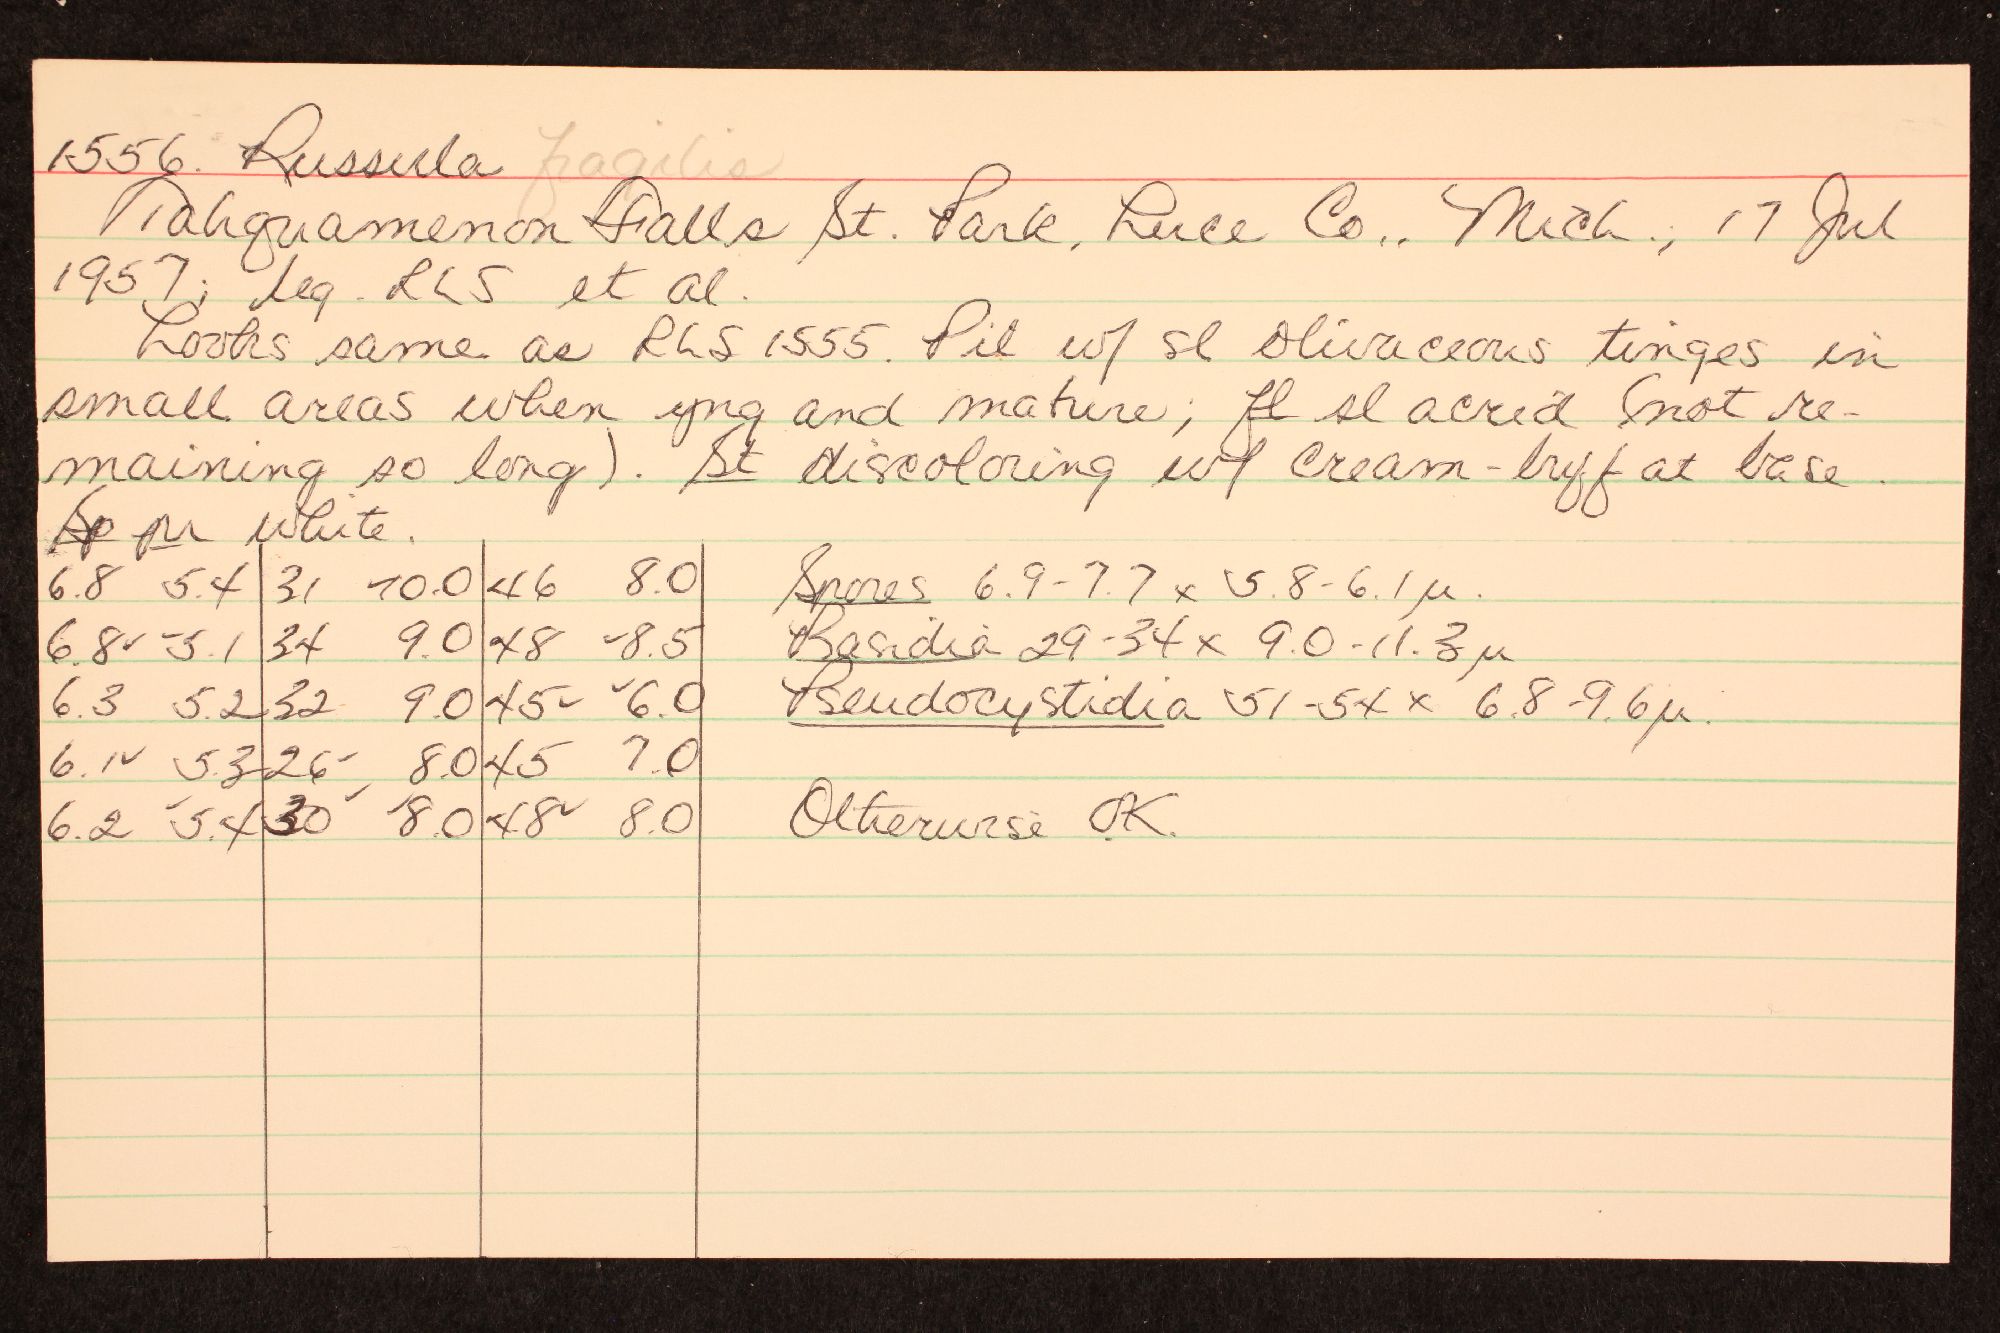 1556. Russula fragilis
Tahquamenon Falls St. Park, Luce Co., Mich.; 17 Jul
1957; leg. RLS et al.
Looks same as RLS 1555. Pil w/ sl olivaceous tinges in
small areas when yng and mature; fl sl acrid (not re-
maining so long). St discoloring w/ cream-buff at base.
Sp pr white.
6.8 5.4 31 10.0 46 8.0 Spores 6.9-7.7 x 5.8-6.1 µ.
6.8 5.1 34 9.0 48 8.5 Basidia 29-34 x 9.0-11.3 µ
6.3 5.2 32 9.0 45 6.0 Pseudocystidia 51-54 x 6.8-9.6 µ.
6.1 5.3 26 8.0 45 7.0
6.2 5.4 30 8.0 48 8.0 Otherwise OK.